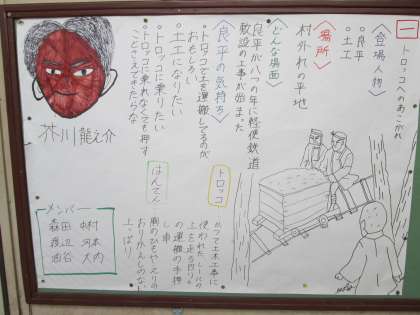 一 トロッコへのあこがれ
〈登場人物〉
・良平
・土工
〈場所〉
村外れの平地
〈どんな場面〉
良平が八つの年に軽便鉄道
敷設の工事が始まった
〈良平の気持ち〉
・トロッコで土を運搬してるのが
おもしろい
・土工になりたい
・トロッコに乗りたい
・トロッコに乗れなくても押す
ことさえできたらな
芥川龍之介
トロッコ
かつて土木工事に
使われたレールの
上を走る四りん
の運搬の手押
し車
はんてん
胸のひもや、えりの
おりかえしのない
上っぱり
メンバー
森田 中村
渡辺 河本
油谷 大内